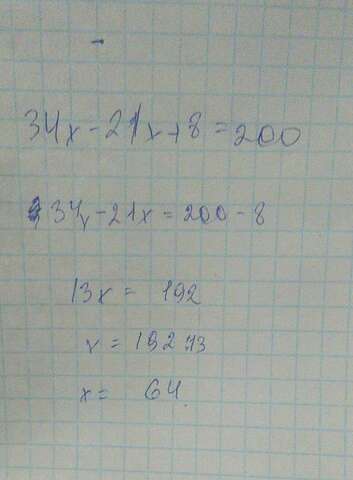 34x-21x+8=200
34x-21x=200-8
13x= 192
x=192:13
x= 64